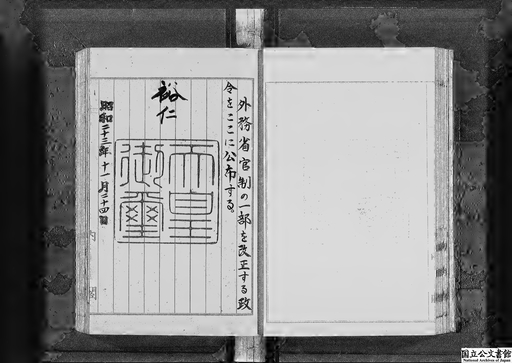 外務省官制の一部を改正する政
令をここに公布する。
裕仁
天皇
御璽
昭和二十三年十一月二十四日
内閣
国立公文書館
National Archives of Japan